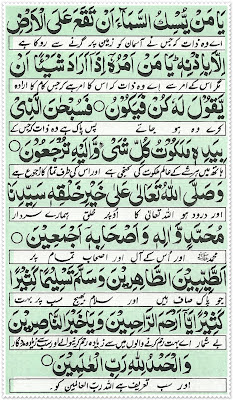 يَا مَنْ يُمْسِكُ السَّمَآءَ اَنْ تَقَعَ عَلَى الْاَرْضِ
اے وہ ذات کہ جس نے آسمان کو زمین پر گرنے سے روکا ہے
اِلَّا بِاِذْنِهٖ يَا مَنْ اَمْرُهٗ اِذَا اَرَادَ شَيْئًا اَنْ
مگر اس کے امر سے اے وہ ذات کہ اس کا امر ہے کہ جس کام کا ارادہ
يَقُوْلَ لَهٗ كُنْ فَيَكُوْنُ ○ فَسُبْحٰنَ الَّذِيْ
کرے وہ ہو جائے پس پاک ہے وہ ذات کہ جس کے
بِيَدِهٖ مَلَكُوْتُ كُلِّ شَيْءٍ وَّاِلَيْهِ تُرْجَعُوْنَ ○
وَصَلَّى اللهُ تَعَالٰى عَلٰى خَيْرِ خَلْقِهٖ سَيِّدِنَا
اور درود ہو اللہ تعالیٰ کا اوپر خلق ہمارے سردار
مُحَمَّدٍ وَّاٰلِهٖ وَاَصْحَابِهٖ اَجْمَعِيْنَ ○
محمد ﷺ اور اس کے آل اور اصحاب تمام پر
الطَّيِّبِيْنَ الطَّاهِرِيْنَ وَسَلَّمَ تَسْلِيْمًا كَثِيْرًا
جو پاک صاف ہیں اور سلام بھیج سب پر بہت
كَثِيْرًا يَا اَرْحَمَ الرَّاحِمِيْنَ وَيَا خَيْرَ النَّاصِرِيْنَ
بے شمار اے بہت رحم کرنے والوں میں سے زیادہ رحم کرنے والے
وَالْحَمْدُ لِلّٰهِ رَبِّ الْعٰلَمِيْنَ ○
اور سب تعریف ہے اللہ رب العالمین کو۔